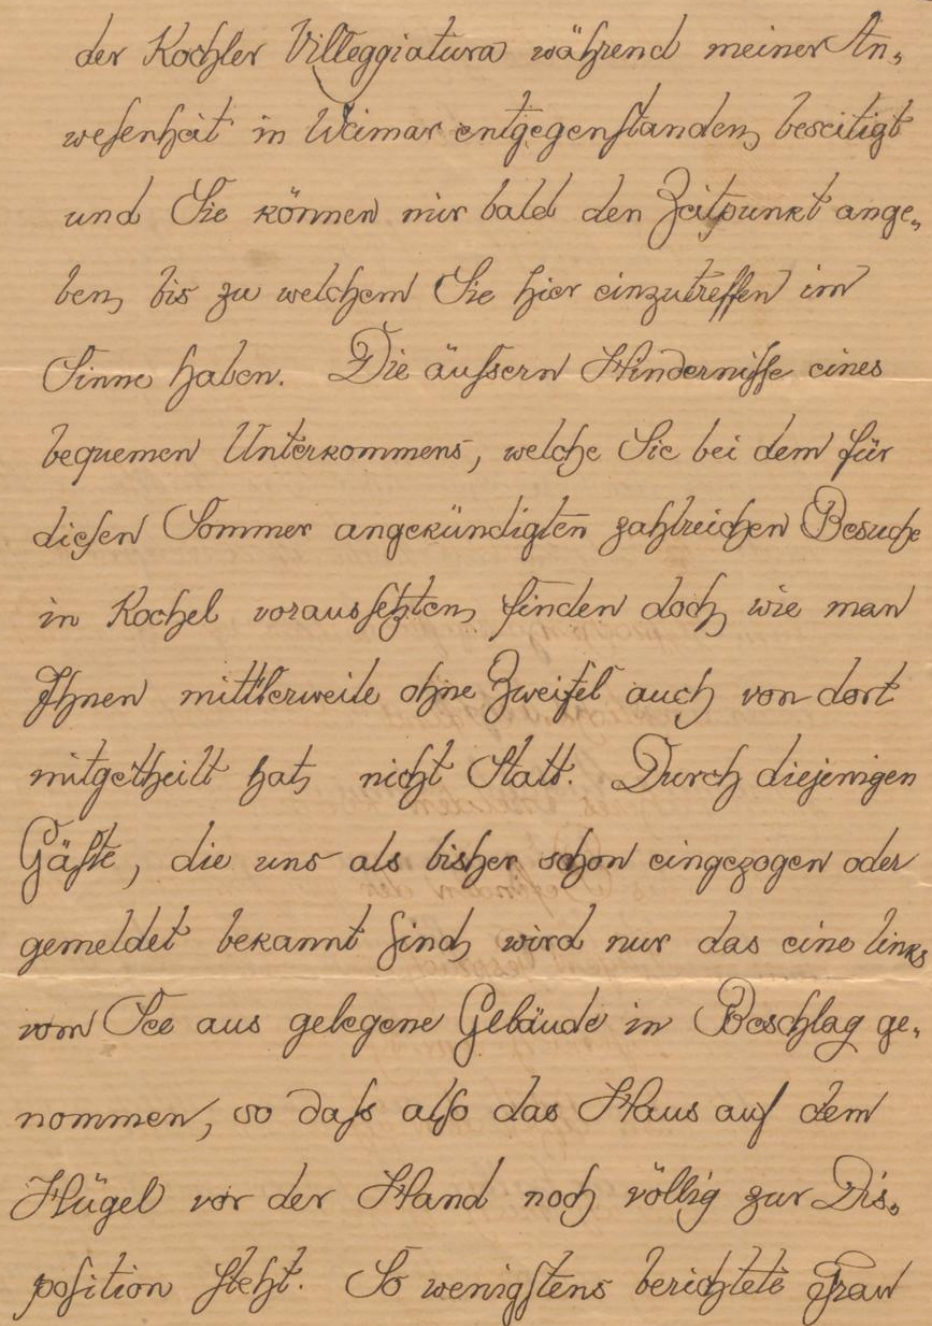 der Kochler Villeggiatura während meiner An-
wesenheit in Weimar entgegenstanden, beseitigt
und Sie können mir bald den Zeitpunkt ange-
ben, bis zu welchem Sie hier einzutreffen im
Sinne haben. Die äußern Hindernisse eines
bequemen Unterkommens, welche Sie bei dem für
diesen Sommer angekündigten zahlreichen Besuche
in Kochel voraussetzten, finden doch, wie man
Ihnen mittlerweile ohne Zweifel auch von dort
mitgetheilt hat, nicht Statt. Durch diejenigen
Gäste, die uns als bisher schon eingezogen oder
gemeldet bekannt sind, wird nur das eine links
vom See aus gelegene Gebäude in Beschlag ge-
nommen, so daß also das Haus auf dem
Hügel vor der Hand noch völlig zur Dis-
position steht. So wenigstens berichtete Frau